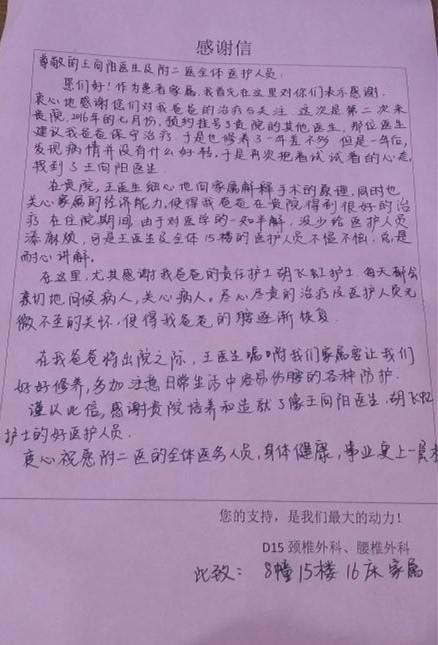 感谢信
尊敬的王向阳医生及附二医全体医护人员:
您们好!作为患者家属,我首先在这里对你们表示感谢.
衷心地感谢您们对我爸爸的治疗与关注.这次是第二次来
贵院,2016年的七月份,预约挂号了贵院的其他医生,那位医生
建议我爸爸保守治疗.于是也修养了一年差不多.但是一年后,
发现病情并没有什么好转,于是再次抱着试试看的心态,
找到了王向阳医生.
在贵院,王医生细心地向家属解释手术的原理,同时也
关心家属的经济能力,使得我爸爸在贵院得到很好的治
疗.在住院期间,由于对医学的一知半解,没少给医护人员
添麻烦,可是王医生及全体15楼的医护人员不愠不恼,总是
耐心讲解.
在这里,尤其感谢我爸爸的责任护士胡飞虹护士.每天都会
亲切地问候病人,关心病人.尽心尽责的治疗及医护人员无
微不至的关怀,使得我爸爸的腰逐渐恢复.
在我爸爸将出院之际,王医生嘱咐我们家属要让我们
好好修养,多加注意日常生活中容易伤腰的各种防护.
谨以此信,感谢贵院培养和造就了像王向阳医生.胡飞虹
护士的好医护人员.
衷心祝愿附二医的全体医务人员,身体健康,事业更上一层
您的支持,是我们最大的动力!
D15 颈椎外科、腰椎外科
此致: 8幢15楼16床家属